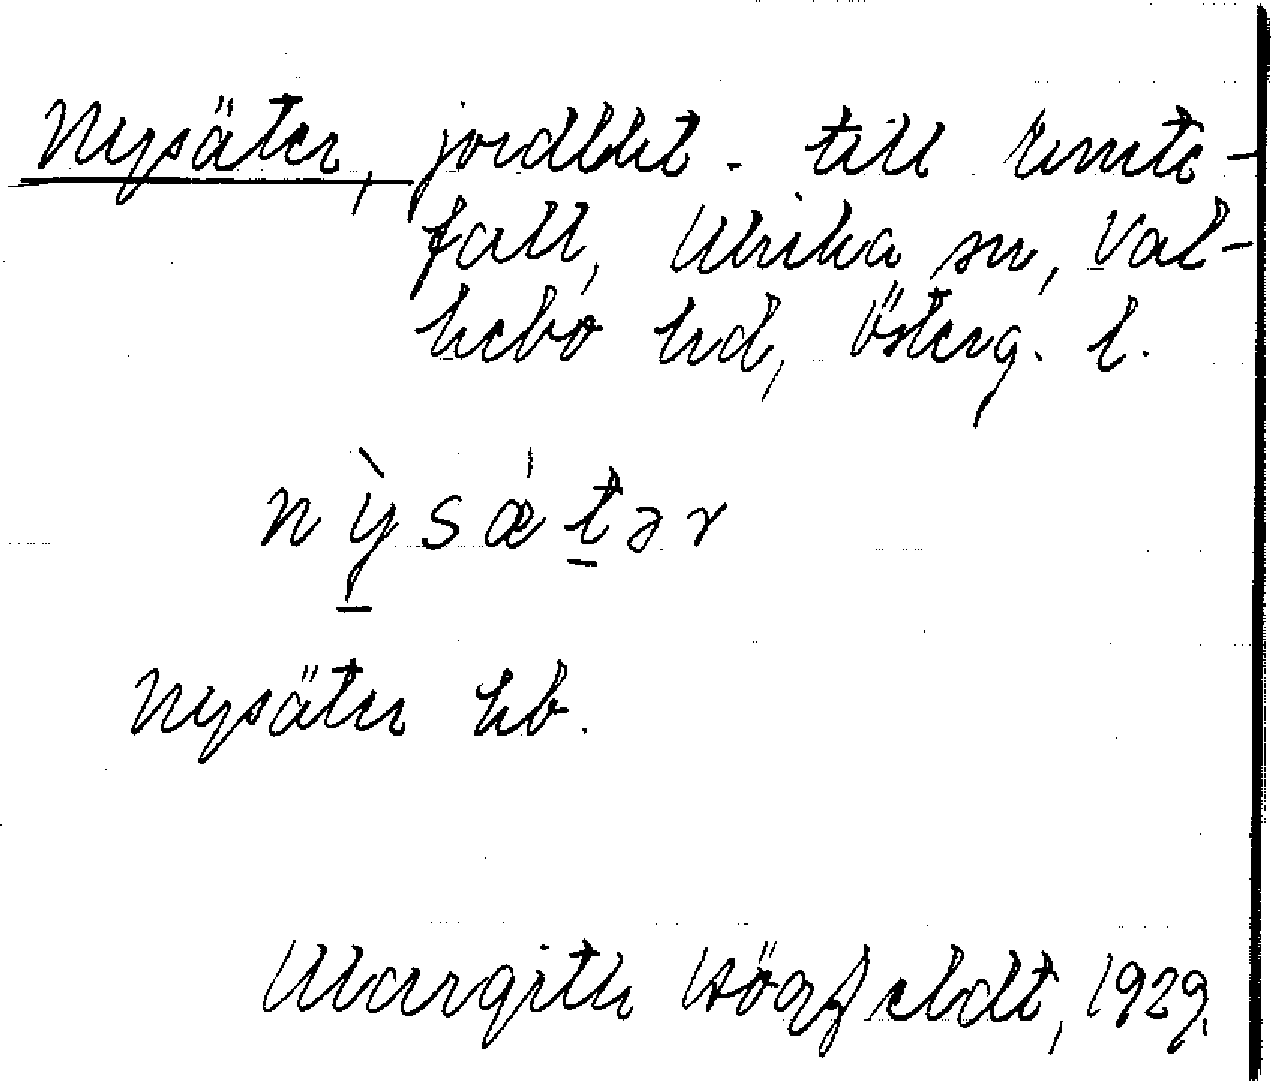 Nysäter, jordlht. till Emte-
fall, Ulrika sn, Val-
kebo hd, Österg. l.
nỳsǽt̲ər
Nysäter kb.
Margith Högfeldt, 1929.